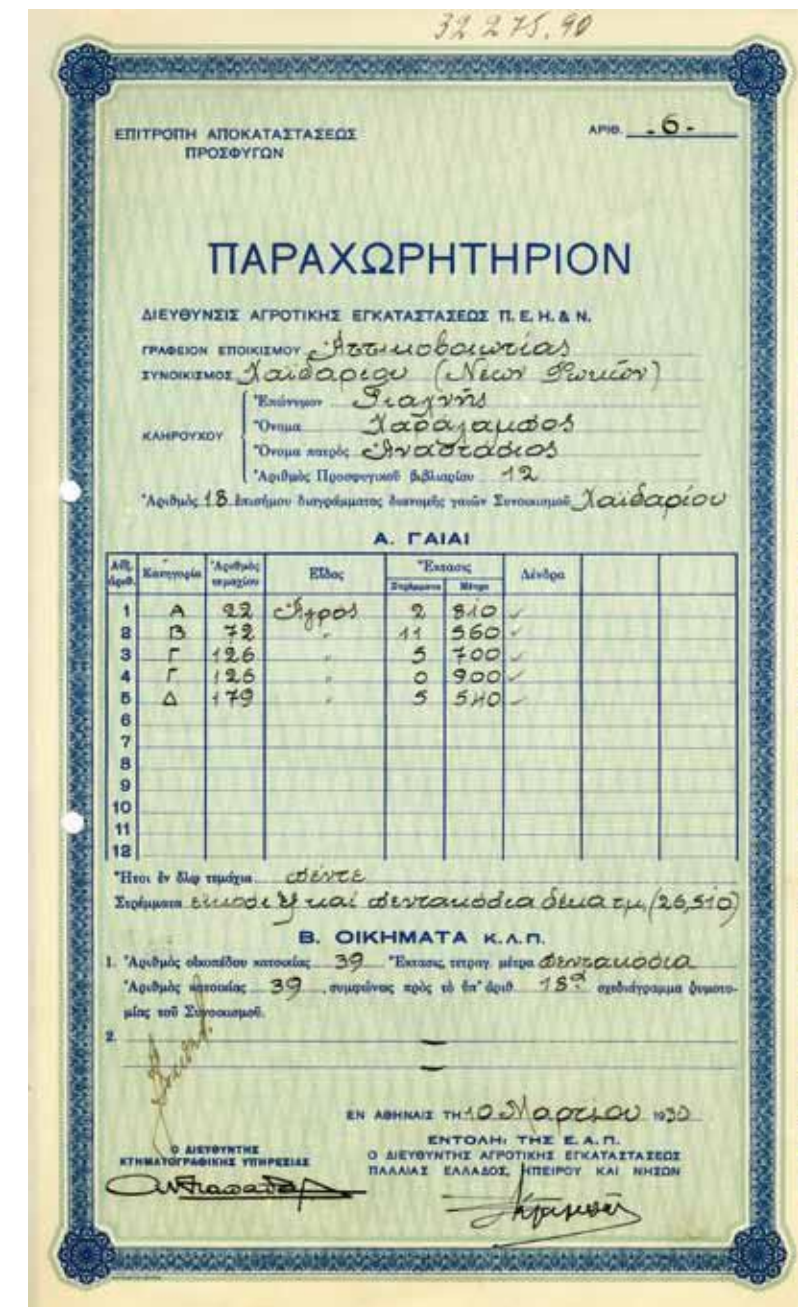 32 275.90
ΕΠΙΤΡΟΠΗ ΑΠΟΚΑΤΑΣΤΑΣΕΩΣ
ΠΡΟΣΦΥΓΩΝ
ΑΡΙΘ. -6-
ΠΑΡΑΧΩΡΗΤΗΡΙΟΝ
ΔΙΕΥΘΥΝΣΙΣ ΑΓΡΟΤΙΚΗΣ ΕΓΚΑΤΑΣΤΑΣΕΩΣ Π. Ε. Η. & Ν.
ΓΡΑΦΕΙΟΝ ΕΠΟΙΚΙΣΜΟΥ Αττικοβοιωτίας
ΣΥΝΟΙΚΙΣΜΟΣ Χαϊδαρίου (Νέων Φωκιών)
ΚΛΗΡΟΥΧΟΥ
Ἐπώνυμον Γιαγνής
Ὄνομα Χαράλαμπος
Ὄνομα πατρὸς Ἀναστάσιος
Ἀριθμὸς Προσφυγικοῦ βιβλιαρίου 12
Ἀριθμὸς 18 ἐπισήμου διαγράμματος διανομῆς γαιῶν Συνοικισμοῦ Χαϊδαρίου
Α. ΓΑΙΑΙ
Αὔξ. ἀριθ. Κατηγορία Ἀριθμὸς τεμαχίου Εἶδος Ἔκτασις Δένδρα
Στρέμματα Μέτρα
1 Α 22 Ἀγρὸς 2 810 ✓
2 Β 72 " 11 560 ✓
3 Γ 126 " 5 700 ✓
4 Γ 126 " 0 900 ✓
5 Δ 179 " 5 540 ✓
6
7
8
9
10
11
12
Ἤτοι ἐν ὅλῳ τεμάχια πέντε
Στρέμματα εἴκοσι ἓξ καὶ πεντακόσια δέκα τμ. (26,510)
Β. ΟΙΚΗΜΑΤΑ Κ.Λ.Π.
1. Ἀριθμὸς οἰκοπέδου κατοικίας 39 Ἔκτασις, τετραγ. μέτρα πεντακόσια
Ἀριθμὸς κατοικίας 39, συμφώνως πρὸς τὸ ὑπ' ἀριθ. 18 σχεδιάγραμμα ῥυμοτο-
μίας τοῦ Συνοικισμοῦ.
2.
ΕΝ ΑΘΗΝΑΙΣ ΤΗ 10 Μαρτίου 1930
Ο ΔΙΕΥΘΥΝΤΗΣ
ΚΤΗΜΑΤΟΓΡΑΦΙΚΗΣ ΥΠΗΡΕΣΙΑΣ
ΕΝΤΟΛΗι ΤΗΣ Ε. Α. Π.
Ο ΔΙΕΥΘΥΝΤΗΣ ΑΓΡΟΤΙΚΗΣ ΕΓΚΑΤΑΣΤΑΣΕΩΣ
ΠΑΛΑΙΑΣ ΕΛΛΑΔΟΣ, ΗΠΕΙΡΟΥ ΚΑΙ ΝΗΣΩΝ